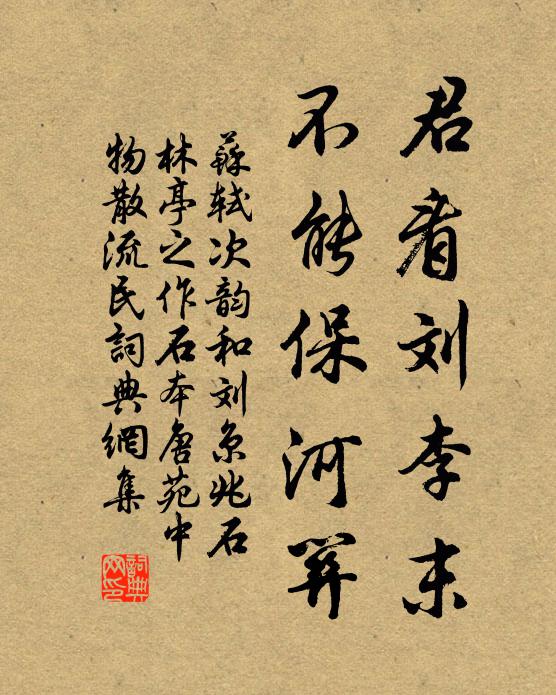 君看刘李末
不能保河关
蘇軾次韵和刘京兆石
林亭之作石本唐苑中
物散流民詞典網集
詞典网印